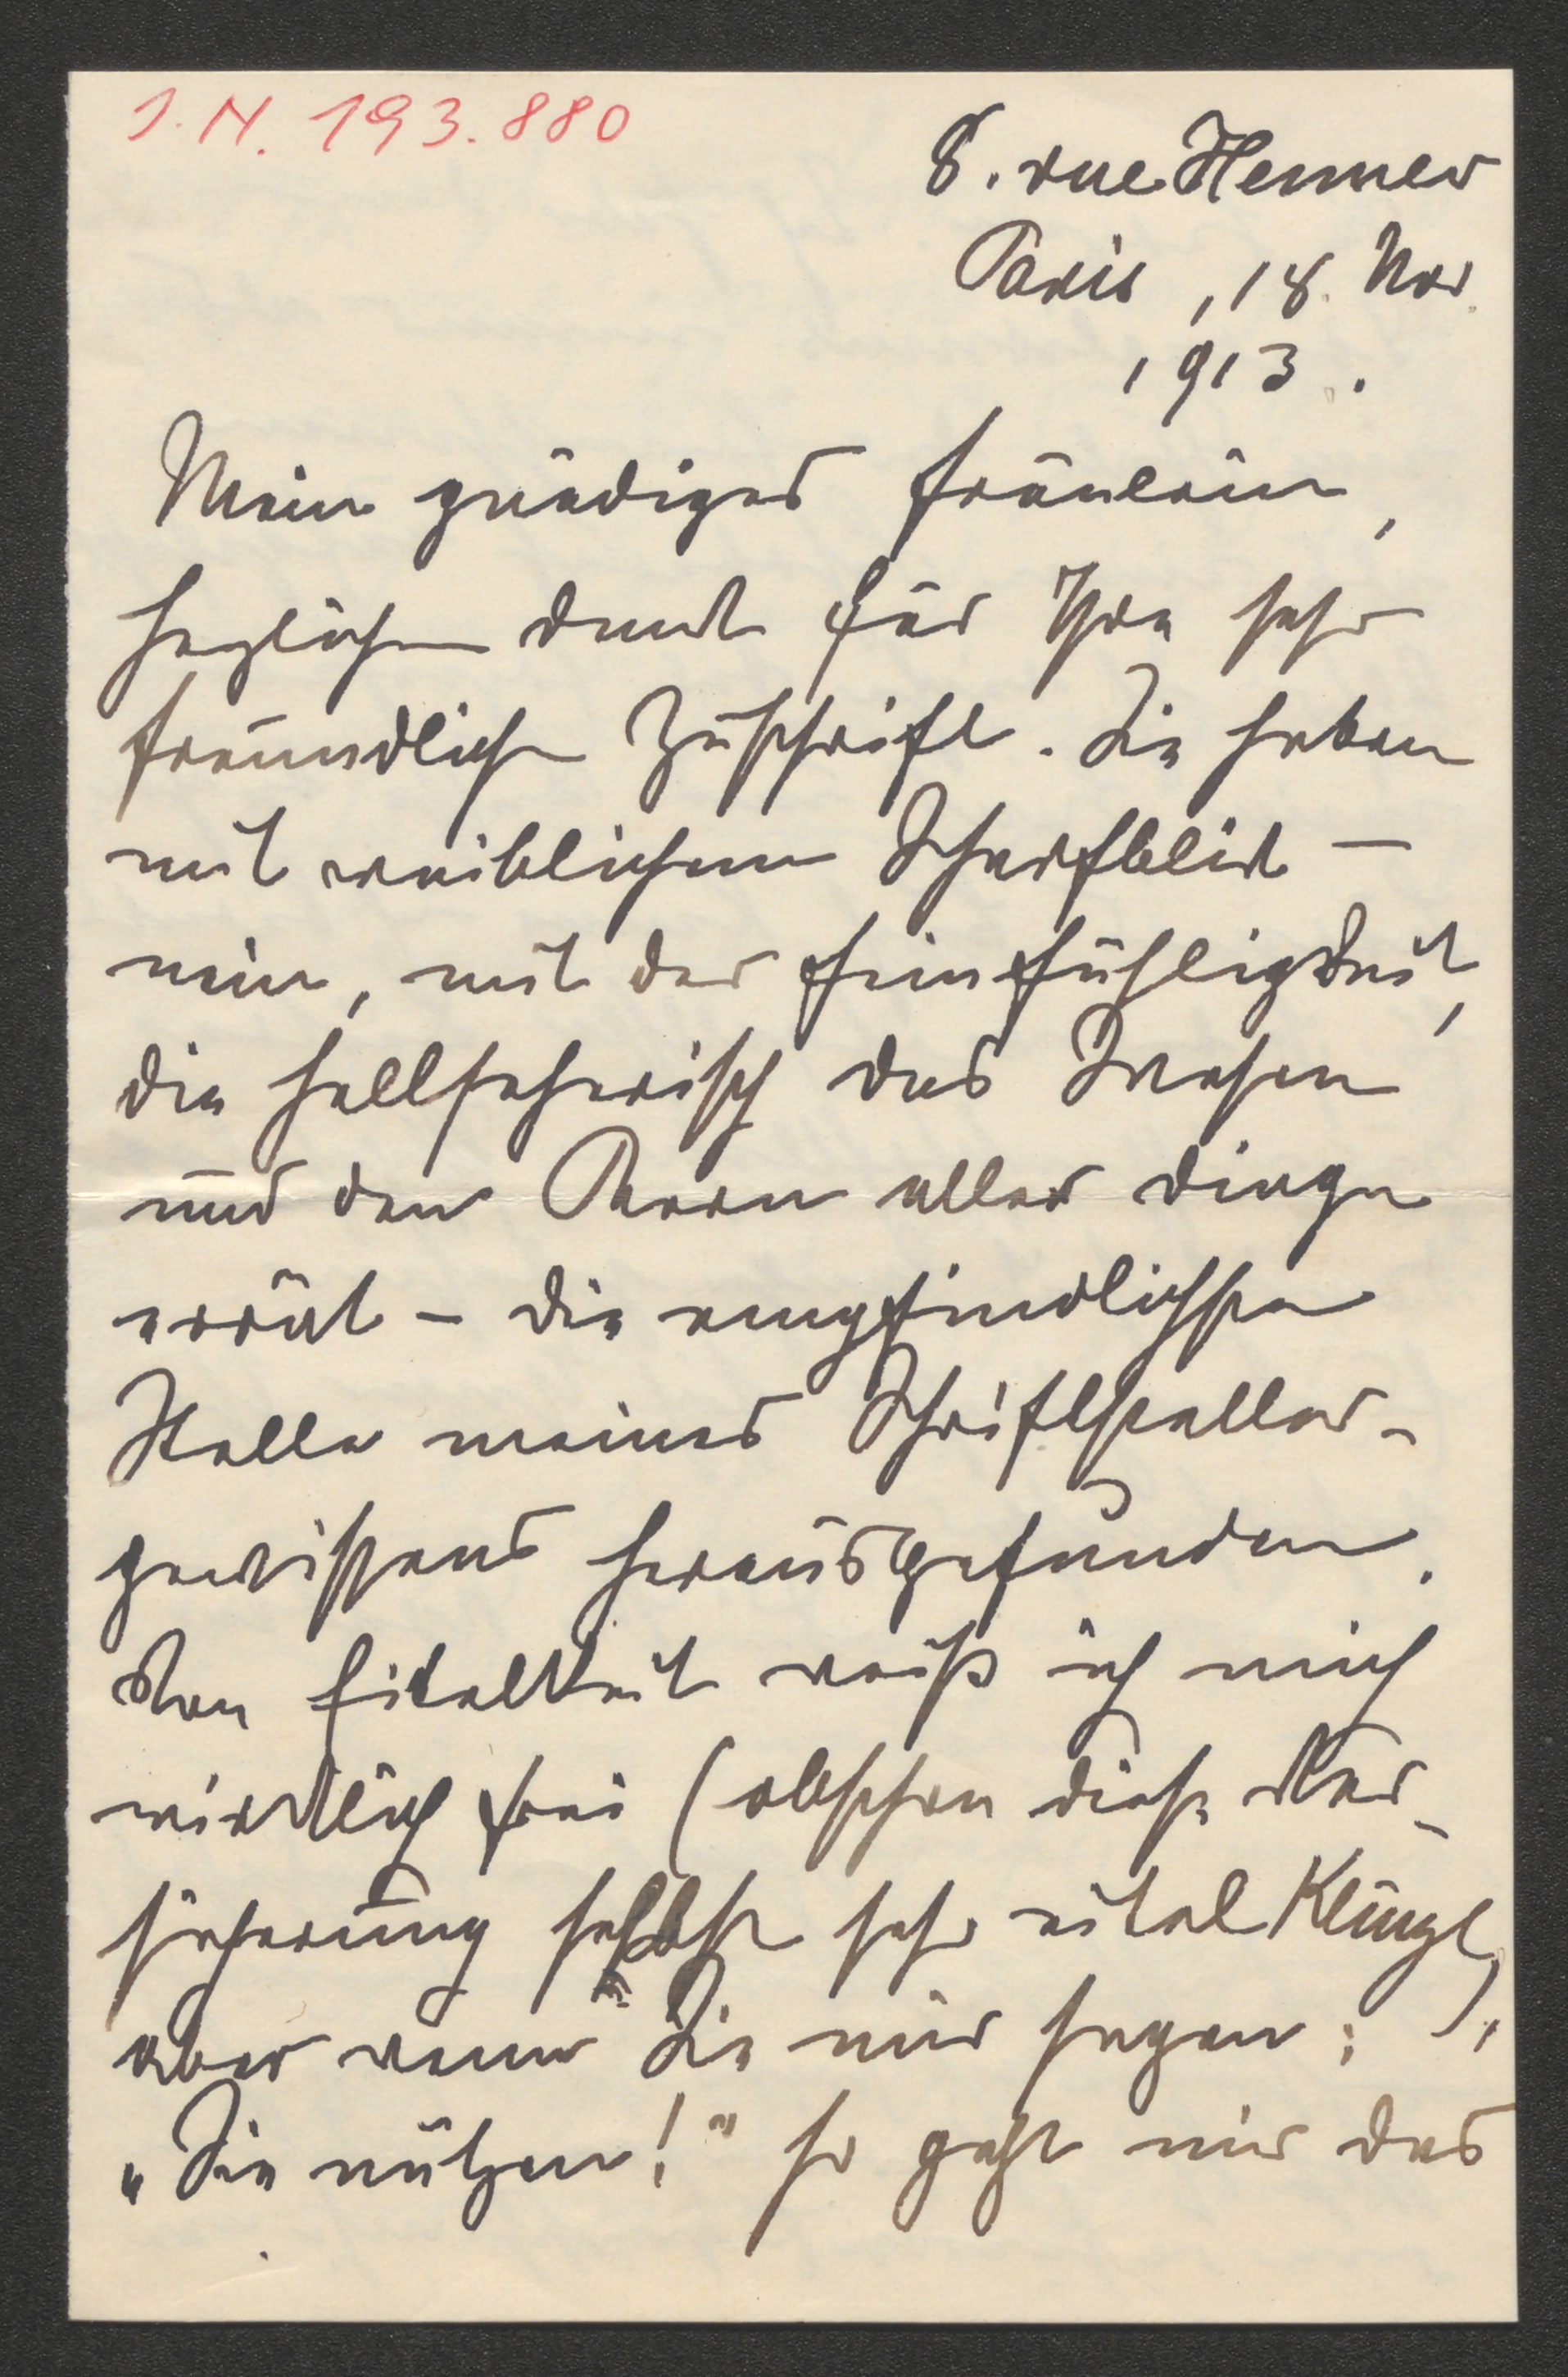 I. N. 193.880
8. rue Henner
Paris, 18. Nov.
1913.
Mein gnädiges Fräulein,
herzlichen Dank für Ihre sehr
freundliche Zuschrift. Sie haben
mit weiblichem Scharfblick –
nein, mit der Feinfühligkeit,
die hellseherisch das Wesen
und den Kern aller Dinge
errät – die empfindlichste
Stelle meines Schriftsteller-
gewissens herausgefunden.
Von Eitelkeit weiß ich mich
wirklich frei (obschon diese Ver-
sicherung selbst sehr eitel klingt),
aber wenn Sie mir sagen:
„Sie nützen!" so geht mir das